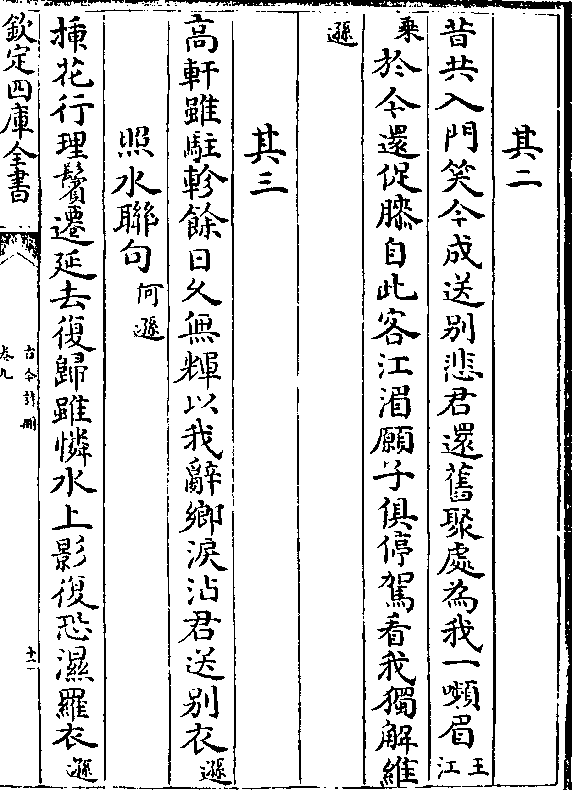 其二
昔共入門笑今成送别悲君還舊聚處為我一嚬眉王江
乘於今還促膝自此客江湄願子俱停駕看我獨解維
遜
其三
高軒雖駐軫餘日久無輝以我辭鄉淚沾君送别衣遜
照水聯句何遜
插花行理鬢遷延去復歸雖憐水上影復恐濕羅衣遜
欽定四庫全書
古今詩刪
卷九
十二